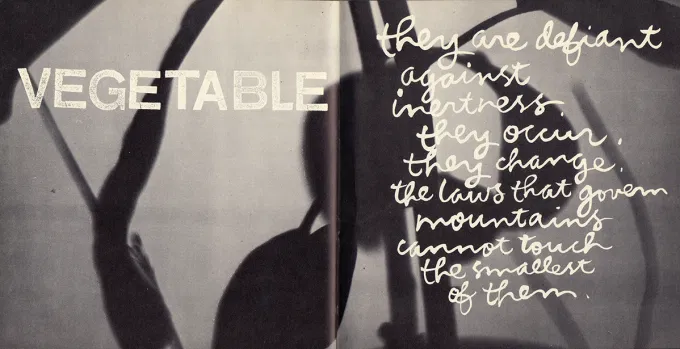 VEGETABLE
they are defiant
against
inertness.
they occur.
they change.
the laws that govern
mountains
cannot touch
the smallest
of them.